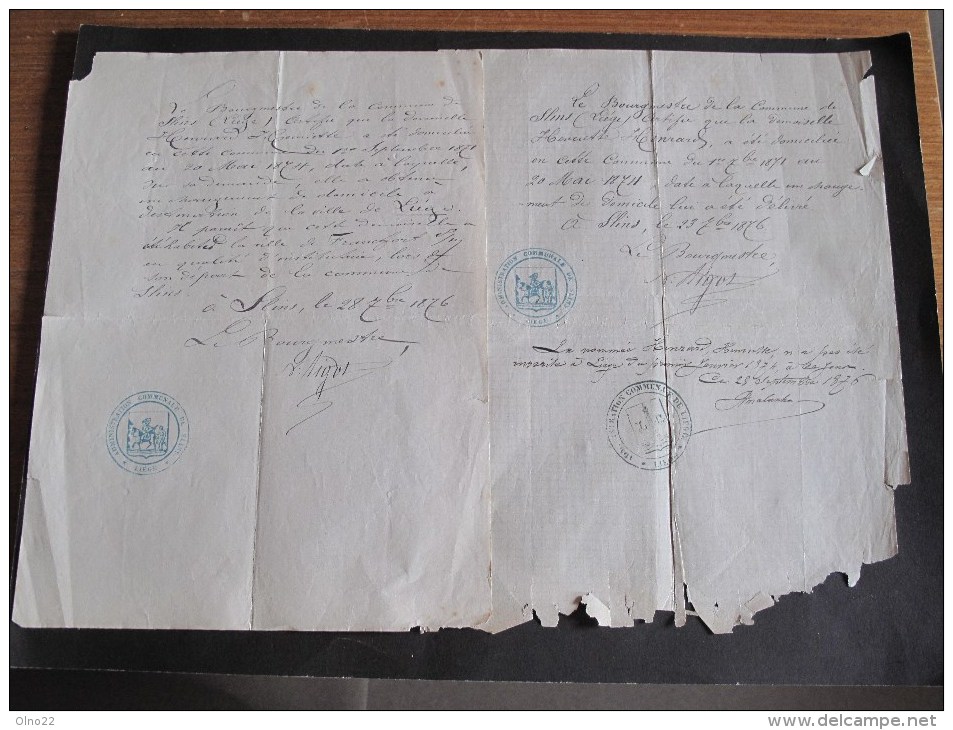 Le Bourgmestre de la Commune de
Slins (Liége) Certifie que la demoiselle
Henrard Henriette a été domiciliée
en cette commune du 1er Septembre 1871
au 20 Mai 1874, date à laquelle,
sur sa demande, elle a obtenu
un changement de domicile à
destination de la ville de Liége.
Il parait que cette demoiselle a
habité la ville de
en qualité d'institutrice, lors de
son départ de la commune de
Slins.
à Slins, le 28 7bre 1876
Le Bourgmestre,
ADMINISTRATION COMMUNALE DE SLINS
LIÉGE
Le Bourgmestre de la Commune de
Slins (Liége) Certifie que la demoiselle
Henriette Henrard, a été domiciliée
en cette Commune du 1er 7bre 1871 au
20 Mai 1874 date à laquelle un change-
ment de domicile lui a été délivré
à Slins, le 23 7bre 1876
Le Bourgmestre,
ADMINISTRATION COMMUNALE DE SLINS
LIÉGE
La nommée Henrard, Henriette, n'a pas été
inscrite à Liége du premier Janvier 1874 à ce jour.
Ce 28 Septembre 1876
ADMINISTRATION COMMUNALE DE LIÉGE
LIÉGE
Olno22
delcampe.net